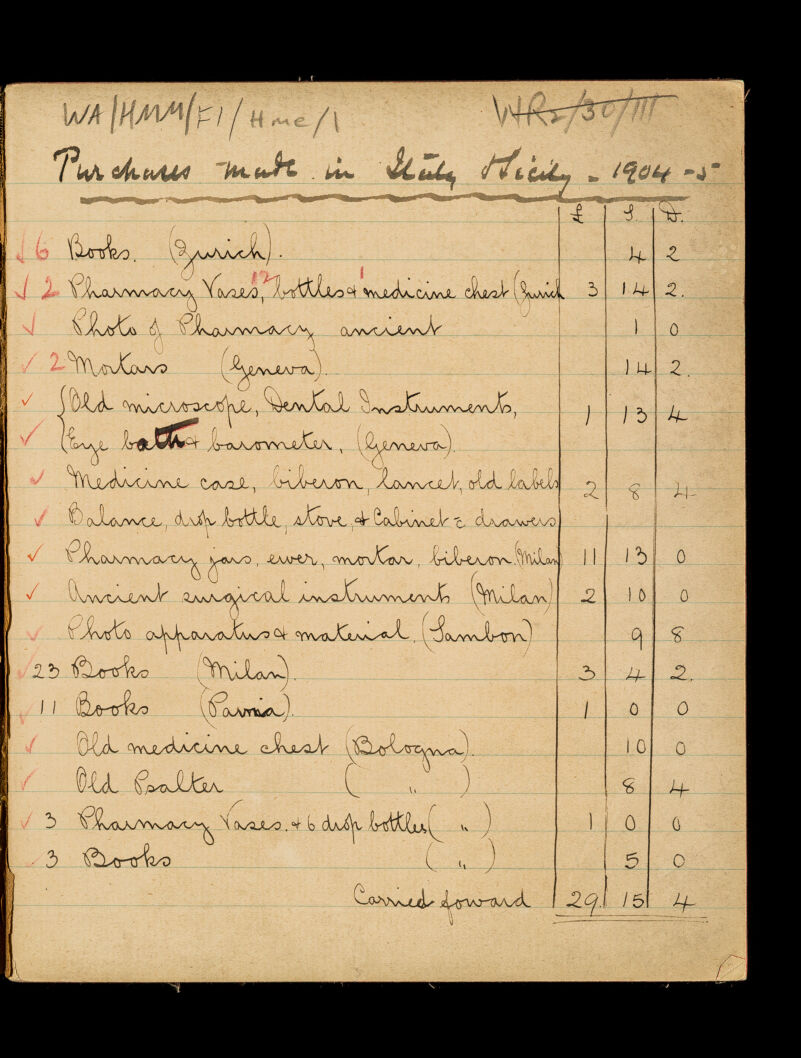 WA/HMM/FI/Hmc/1 WR2/30/III
Purchases made in Italy & Sicily - 1904-5
£ S. D.
✓ 6 Books. (Zurich). 4 2
✓ 2 Pharmacy Vases, 12 bottles & 1 medicine chest (Zurich 3 14 2.
✓ Photo of Pharmacy ancient 1 0
✓ 2 Mortars (Geneva). 14 2.
✓ {Old microscope, Dental Instruments, 1 13 4
✓ {Eye bath & barometer, (Geneva).
✓ Medicine case, biberon, lancet, old labels 2 8 4
✓ Balance, drop bottle, stove, & Cabinet c̄ drawers
✓ Pharmacy jars, ewer, mortar, biberon. (Milan) 11 13 0
✓ Ancient surgical instruments (Milan) 2 10 0
✓ Photo apparatus & material. (Sambon) 9 8
✓ 23 Books (Milan). 3 4 2.
✓ 11 Books (Pavia). 1 0 0
✓ Old medicine chest (Bologna). 10 0
✓ Old Psalter ( " ) 8 4
✓ 3 Pharmacy Vases. & 6 drop bottles ( " ) 1 0 0
✓ 3 Books ( " ) 5 0
Carried foward 29. 15 4